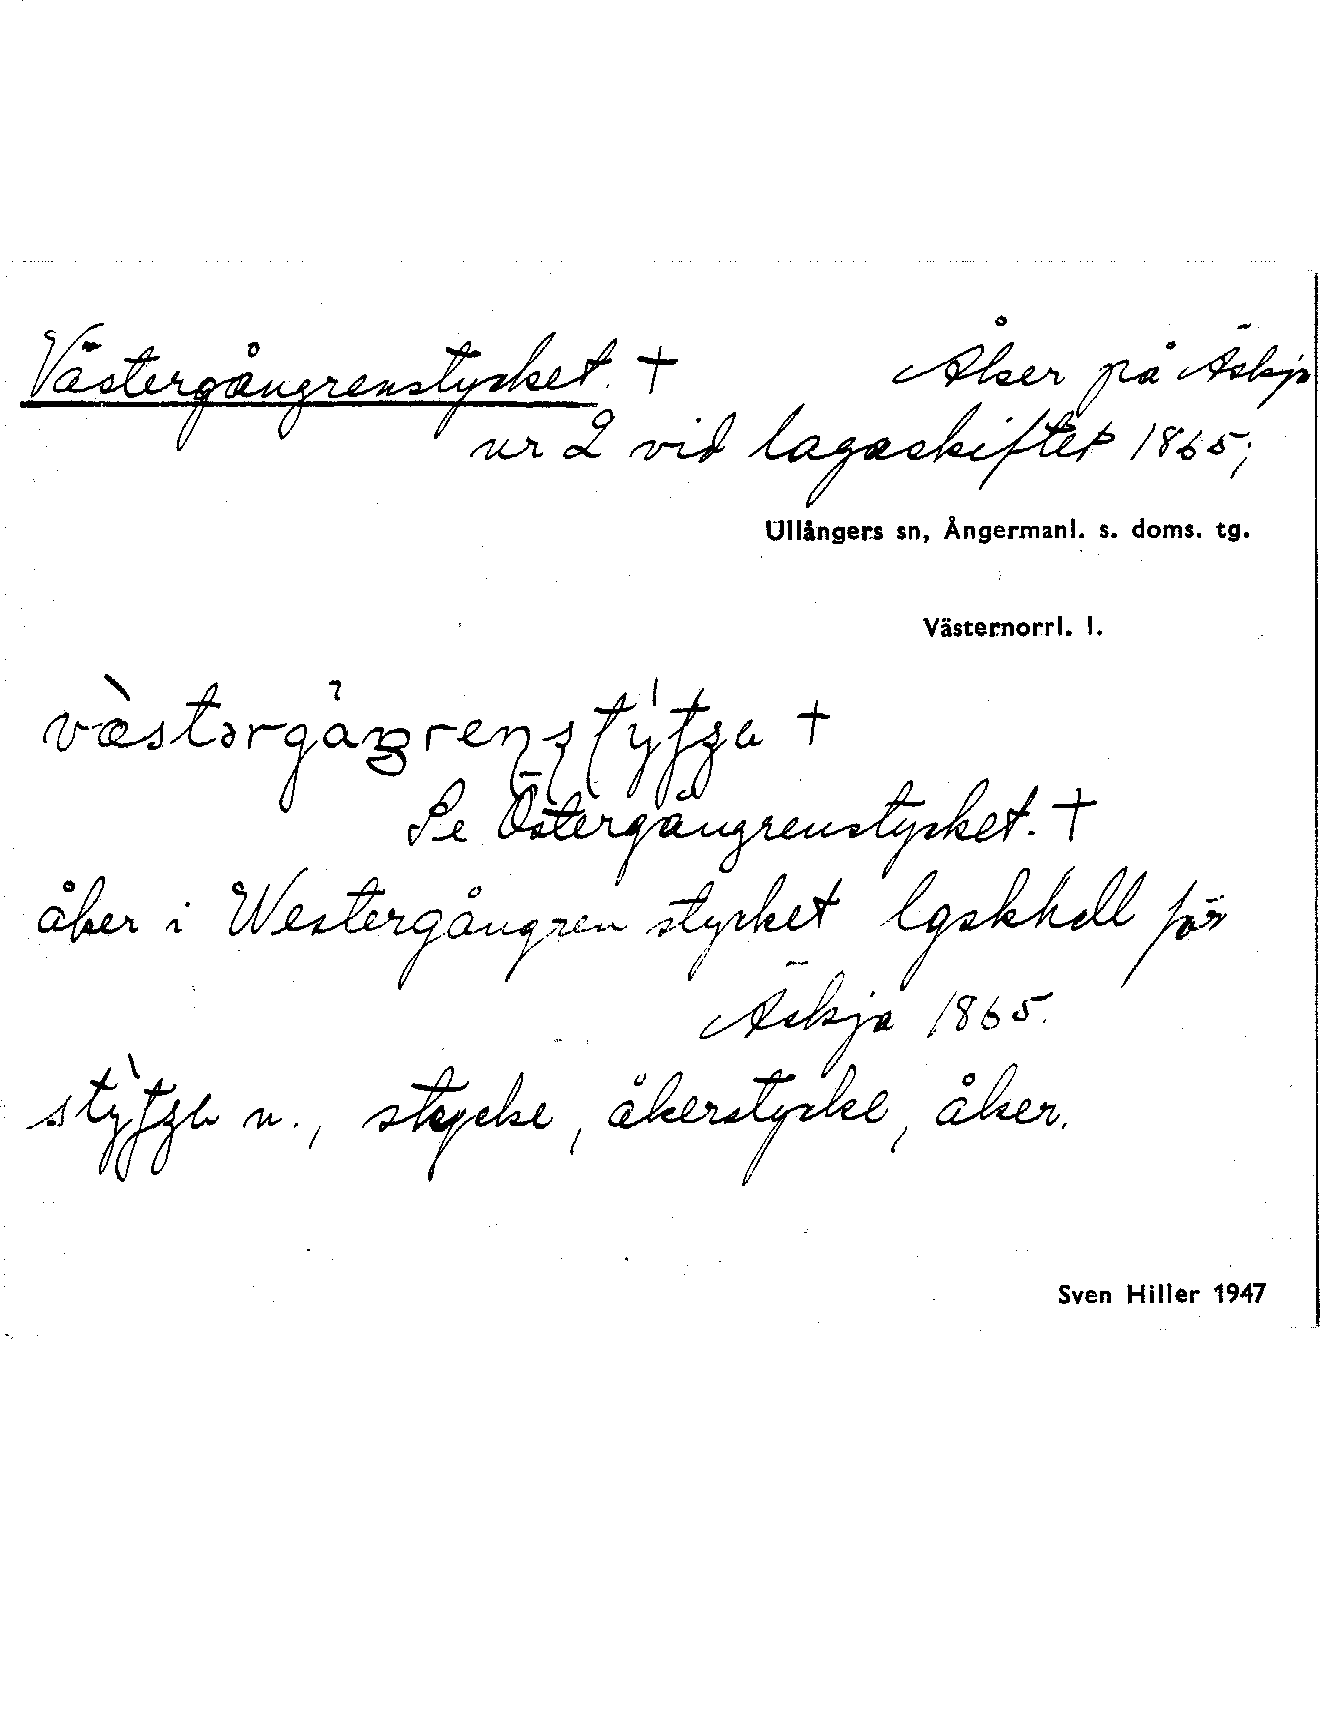 Västergångrenstycket. + Åker på Äskja
nr 2 vid lagaskiftet 1865;
Ullångers sn, Ångermanl. s. doms. tg.
Västernorrl. l.
+
Se Östergångrenstycket. +
åker i Westergångren stycket lgskhdl för
Äskja 1865.
n., stycke, åkerstycke, åker.
Sven Hiller 1947